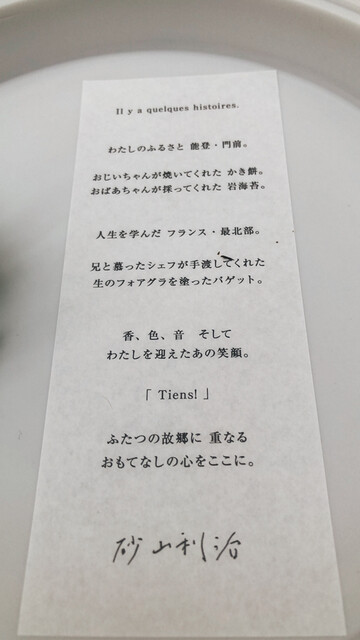 Il y a quelques histoires.
わたしのふるさと 能登・門前。
おじいちゃんが焼いてくれた かき餅。
おばあちゃんが採ってくれた 岩海苔。
人生を学んだ フランス・最北部。
兄と慕ったシェフが手渡してくれた
生のフォアグラを塗ったバゲット。
香、色、音　そして
わたしを迎えたあの笑顔。
「 Tiens! 」
ふたつの故郷に 重なる
おもてなしの心をここに。
砂山利治